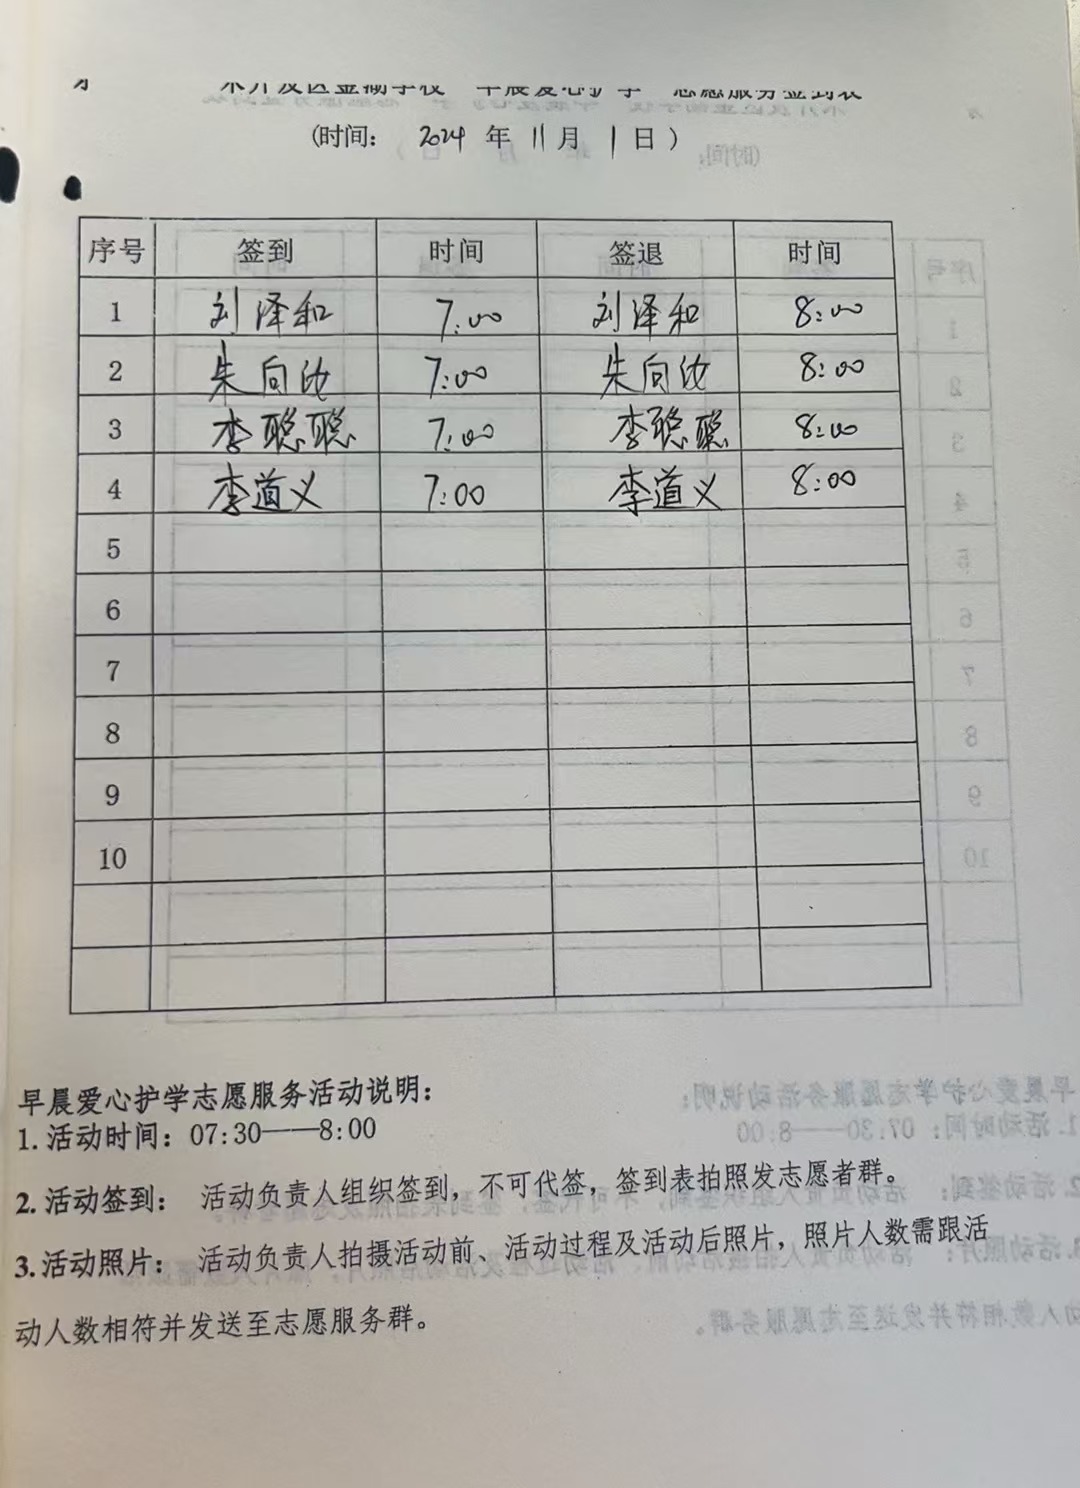 (时间： 2024 年 11 月 1 日)
序号 签到 时间 签退 时间
1 刘泽和 7:00 刘泽和 8:00
2 朱向 7:00 朱向 8:00
3 李聪聪 7:00 李聪聪 8:00
4 李道义 7:00 李道义 8:00
5
6
7
8
9
10
早晨爱心护学志愿服务活动说明：
1. 活动时间：07:30——8:00
2. 活动签到： 活动负责人组织签到，不可代签，签到表拍照发志愿者群。
3. 活动照片： 活动负责人拍摄活动前、活动过程及活动后照片，照片人数需跟活
动人数相符并发送至志愿服务群。